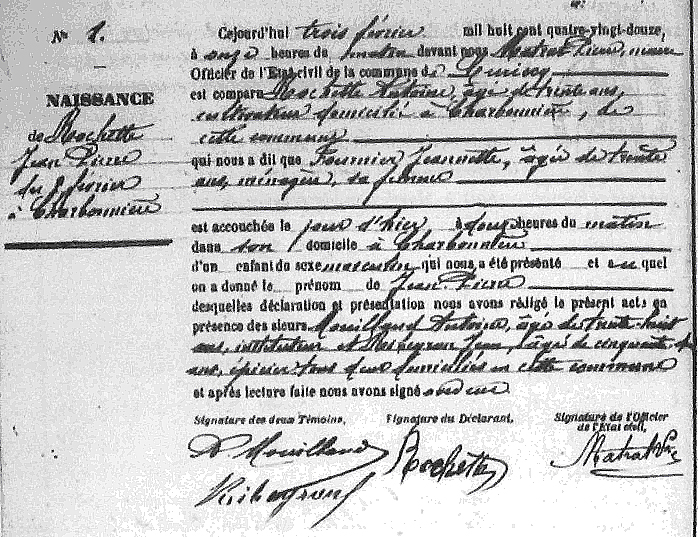 N° 1.
NAISSANCE
de Rochette
Jean Pierre
du 2 février
à Charbonnière
Cejourd'hui trois février mil huit cent quatre-vingt-douze,
à onze heures du matin devant nous Matrat Pierre, maire
Officier de l'Etat-civil de la commune de
est comparu Rochette Antoine, âgé de trente ans,
cultivateur domicilié à Charbonnière, de
cette commune
qui nous a dit que Fournier Jeannette, âgée de trente
ans, ménagère, sa femme
est accouchée le jour d'hier à heures du matin
dans son domicile à Charbonnière
d'un enfant du sexe masculin qui nous a été présenté et auquel
on a donné le prénom de Jean-Pierre
desquelles déclaration et présentation nous avons rédigé le présent acte en
présence des sieurs Mouilland Antoine, âgé de trente-huit
ans, instituteur et Jean, âgé de cinquante
ans, épicier tous deux domiciliés en cette commune
et après lecture faite nous avons signé avec eux
Signature des deux Témoins, Signature du Déclarant, Signature de l'Officier
de l'Etat civil,
A Mouilland Rochette Matrat